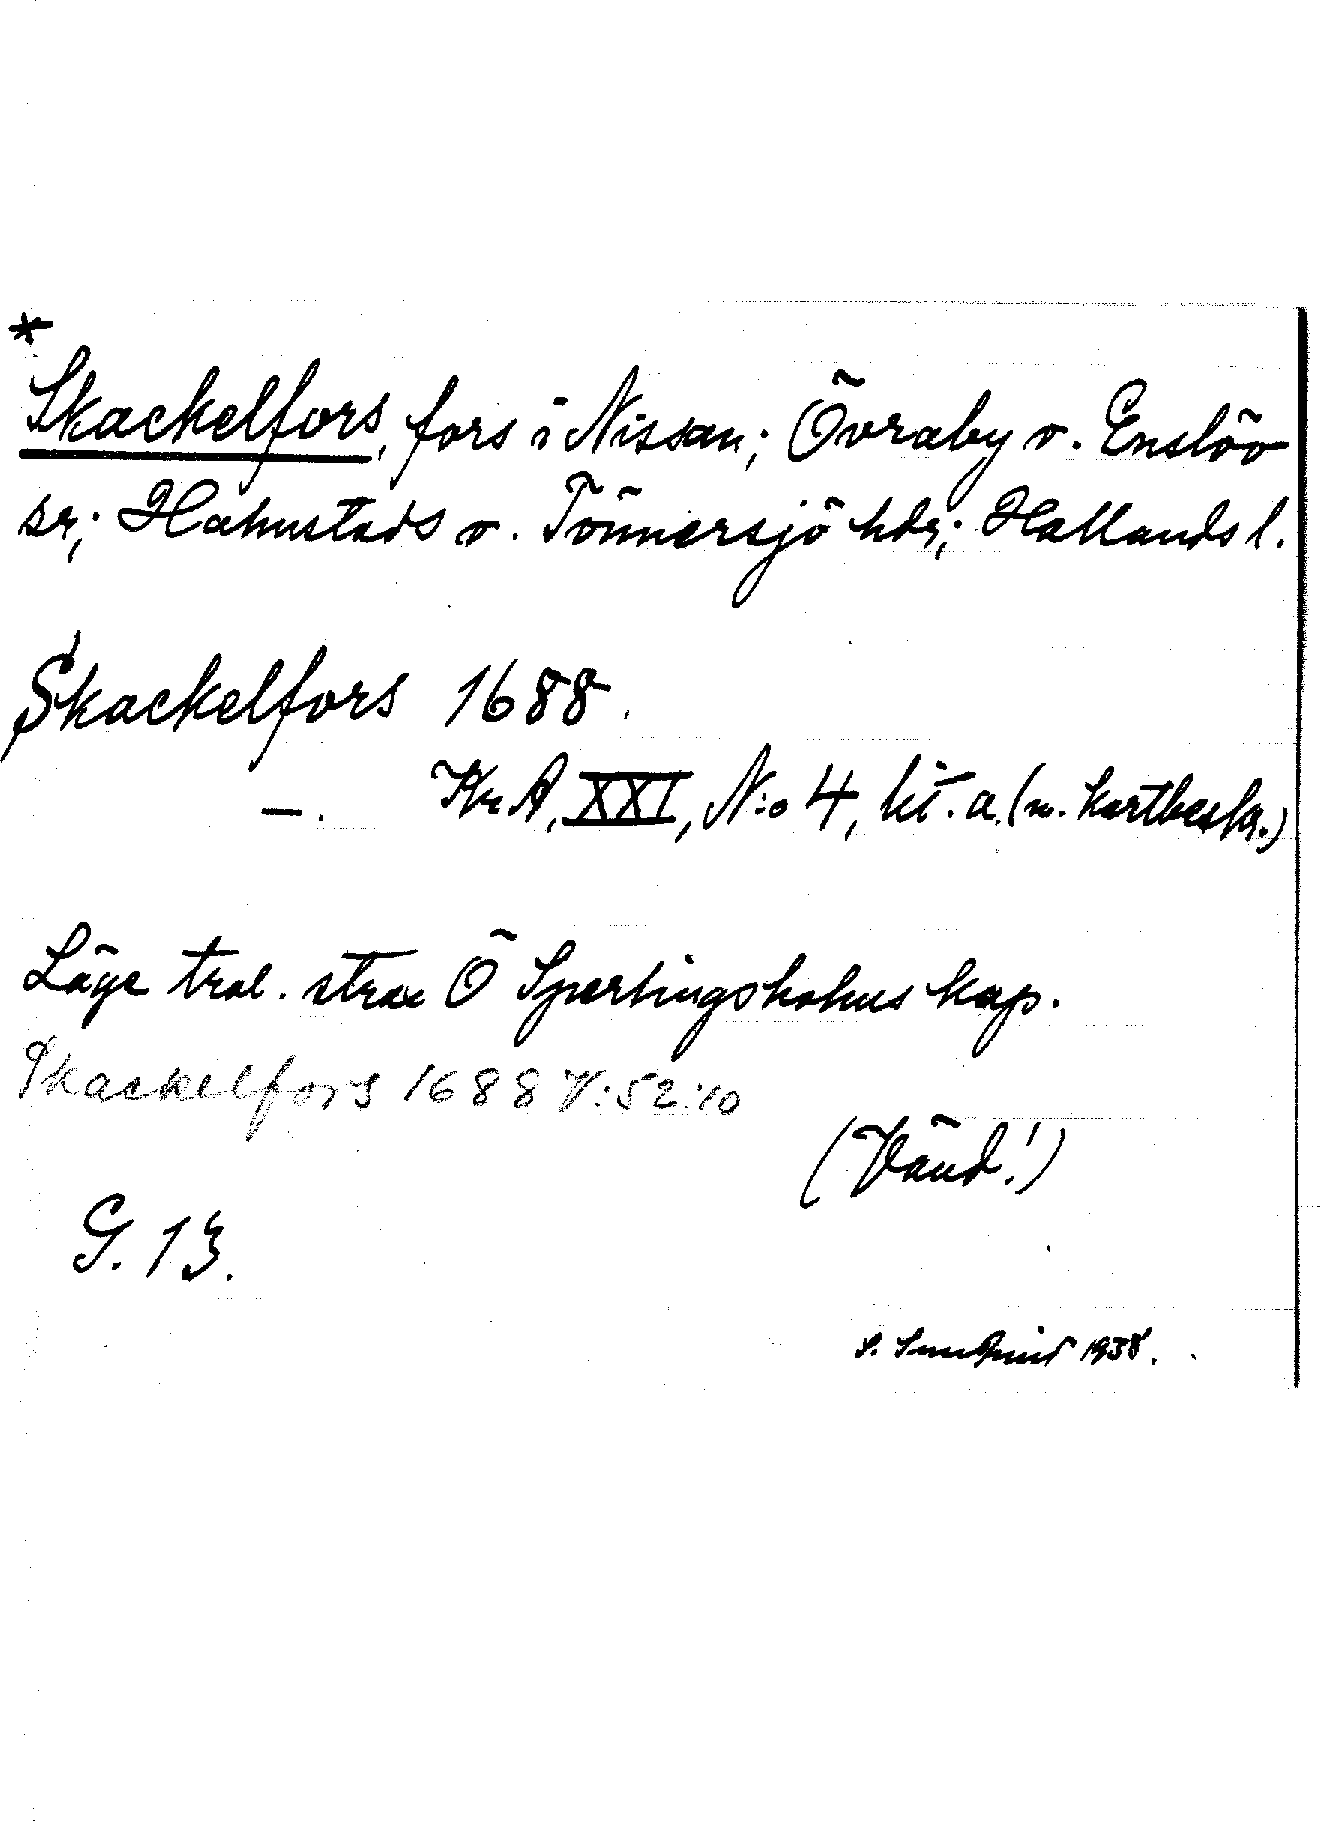 *
Skackelfors, fors i Nissan; Övraby o. Enslöv
snr; Halmstads o. Tönnersjö hdr; Hallands l.
Skackelfors 1688.
—. KrA, XXI, N:o 4, lit. a. (m. kartbeskr.)
Läge trol. strax Ö Sperlingsholms kap.
Skackelfors 1688 V:52:10
(Vänd!)
G. 13.
S. Sundquist 1938.